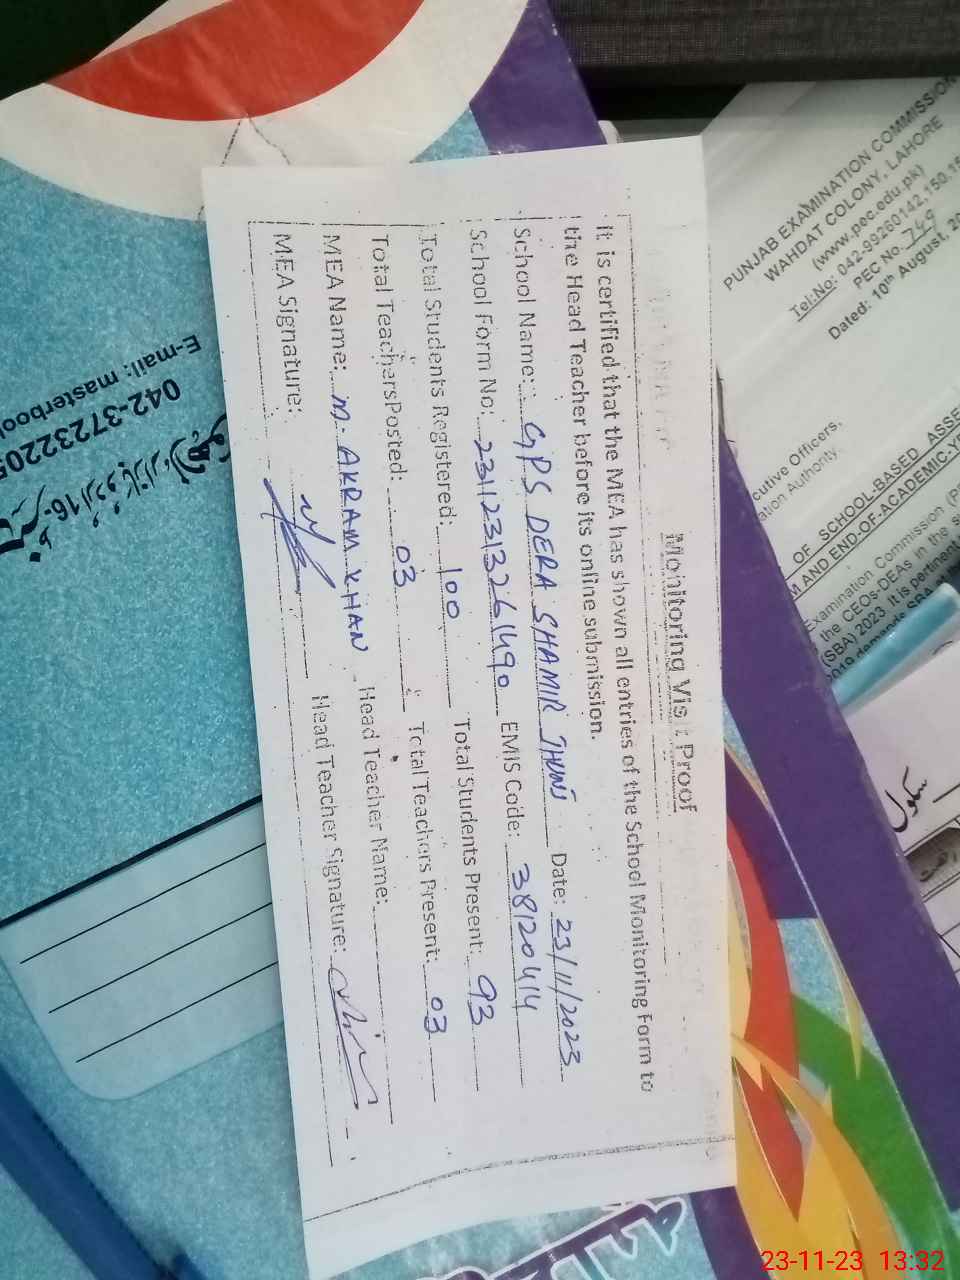 Monitoring Visit Proof
It is certified that the MEA has shown all entries of the School Monitoring Form to
the Head Teacher before its online submission.
School Name: GPS DERA SHAMIR THUNI Date: 23/11/2023
School Form No: 231123132261490 EMIS Code: 38120414
Total Students Registered: 100 Total Students Present: 93
Total Teachers Posted: 03 Total Teachers Present: 03
MEA Name: M. AKRAM KHAN Head Teacher Name:
MEA Signature: Head Teacher Signature:
PUNJAB EXAMINATION COMMISSION
WAHDAT COLONY, LAHORE
(www.pec.edu.pk)
Tel:No: 042-99260142,150,15
PEC No. 749
Dated: 10th August, 20
cutive Officers,
ation Authority.
OF SCHOOL-BASED ASSE
M AND END-OF-ACADEMIC-YE
Examination Commission (P
the CEOs-DEAs in the s
(SBA) 2023. It is pertinent
E-mail: masterbook
042-3723220
سکول
23-11-23 13:32